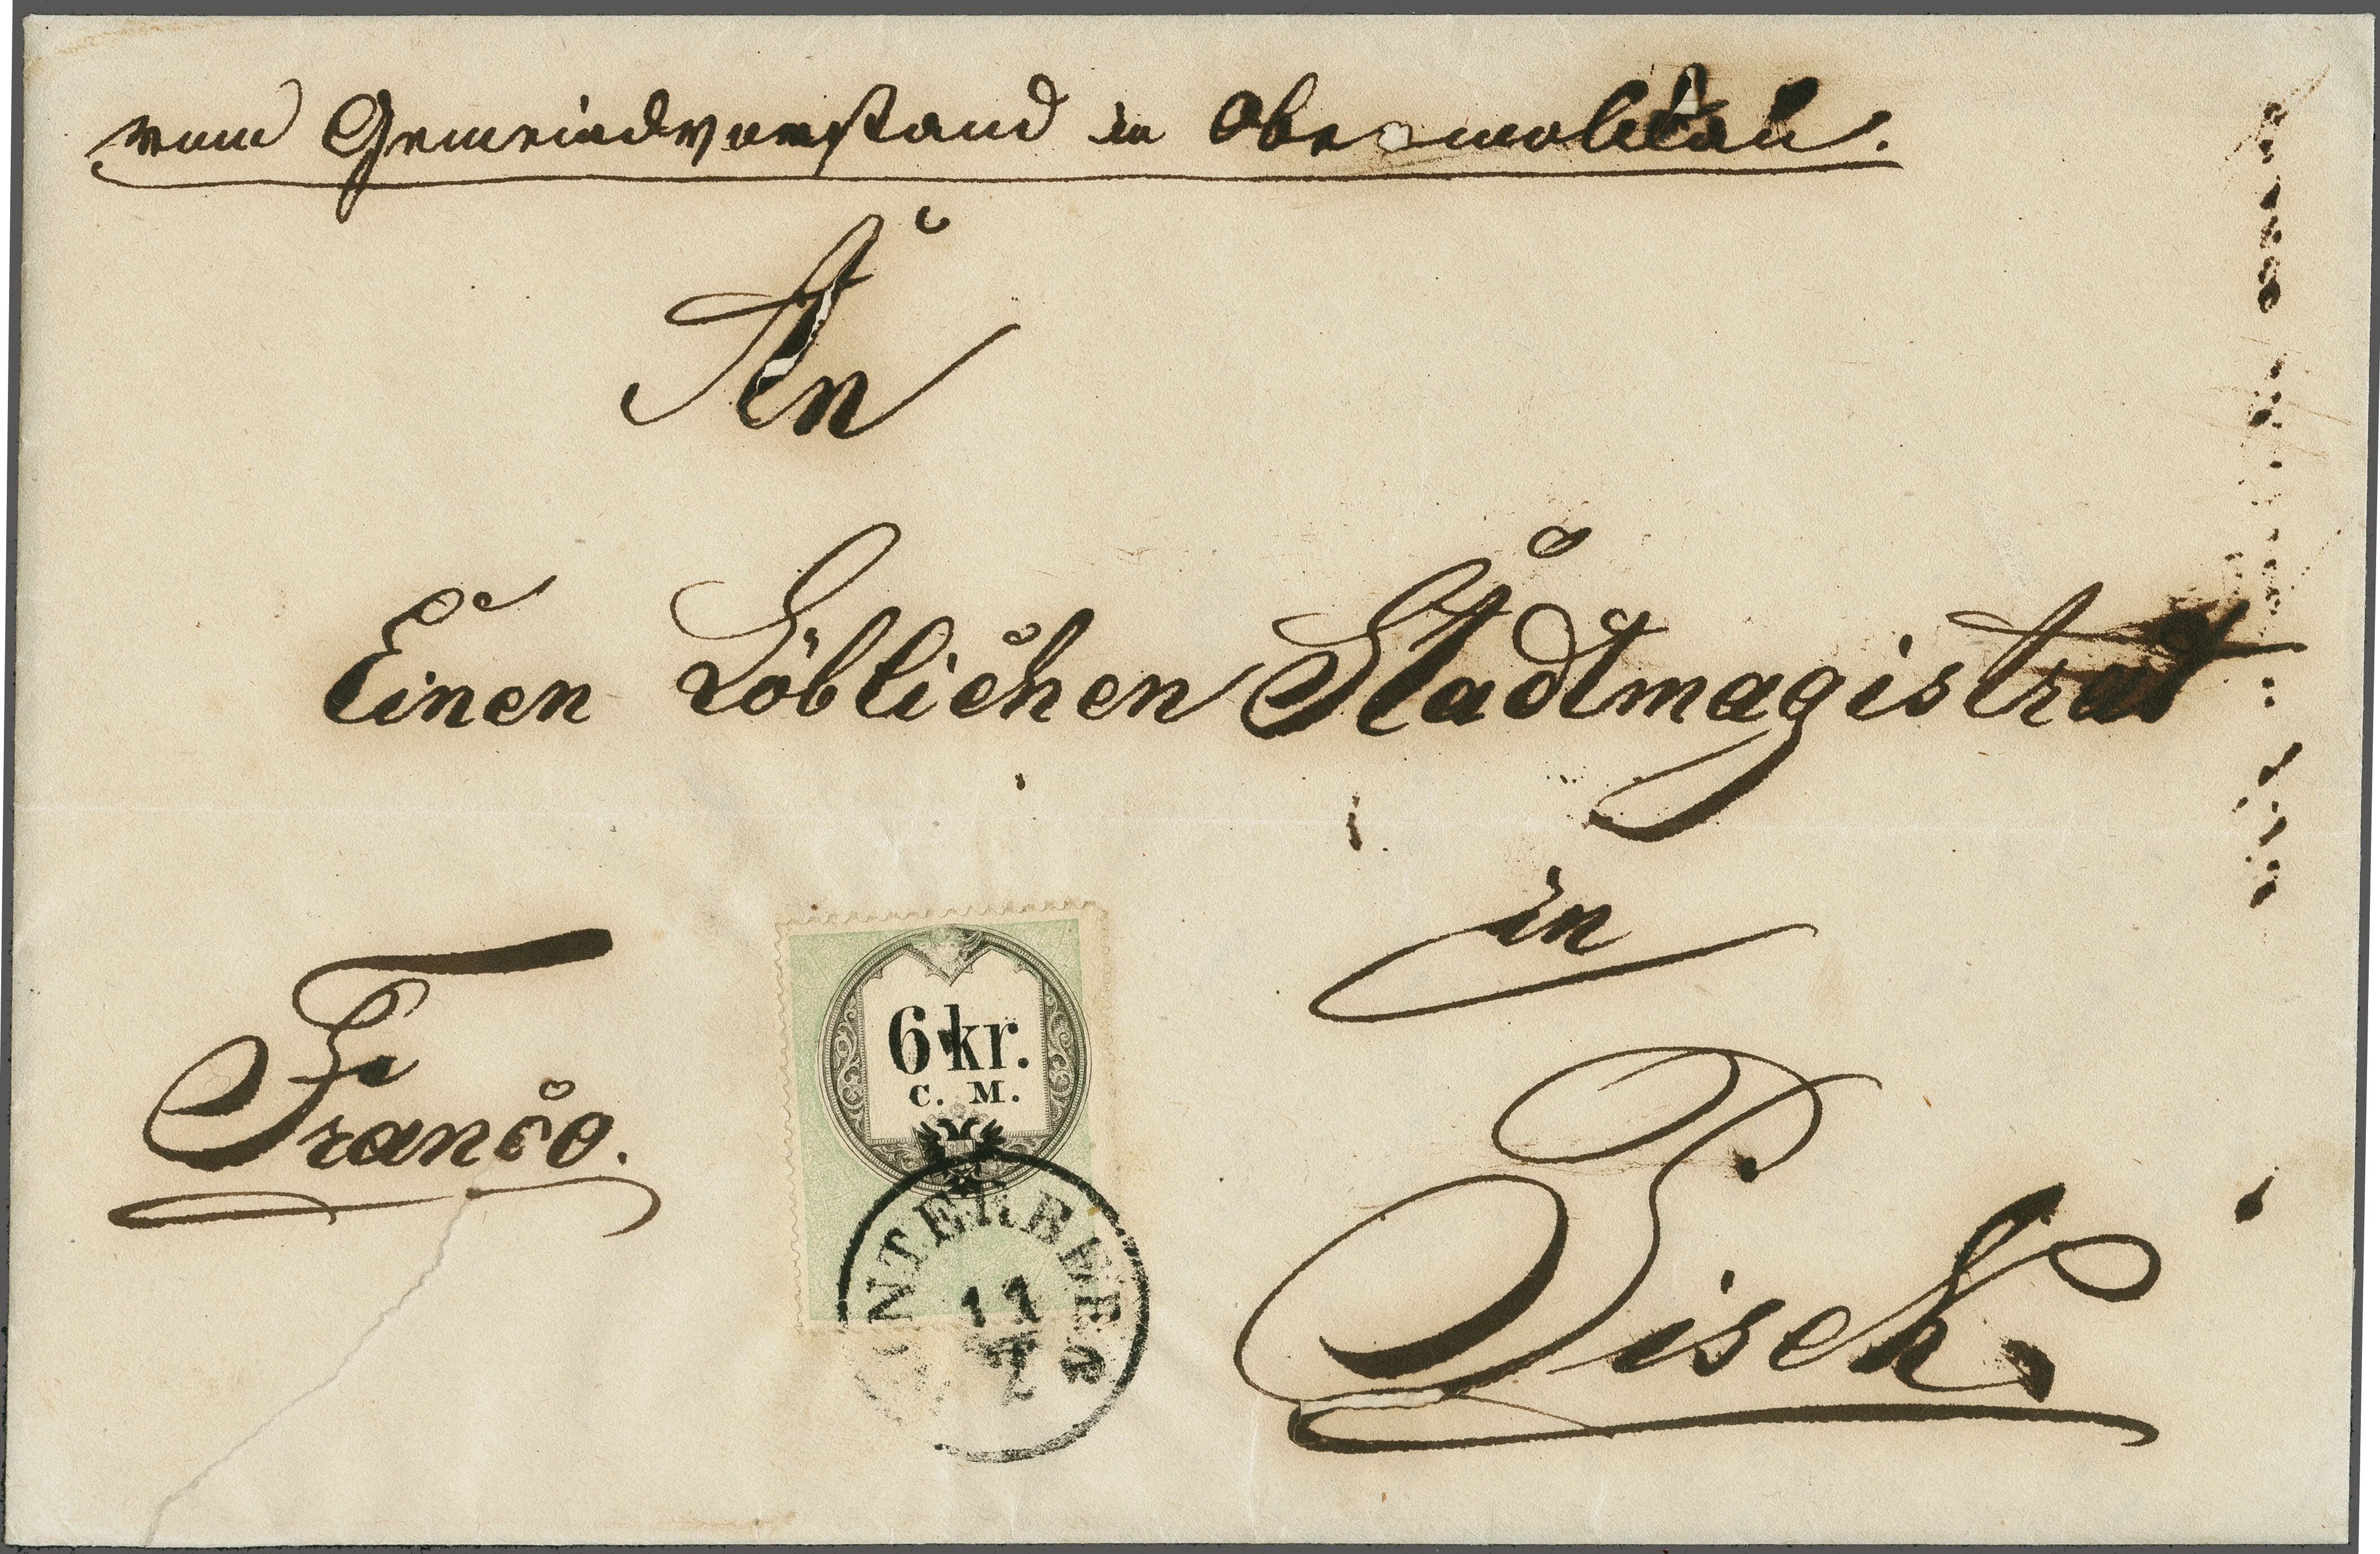 vom Gemeindevorstand in Obermoldau.
An
Einen Löblichen Stadtmagistrat
in
Pisek
Franco.
6 kr.
C. M.
WINTERBERG
11
7